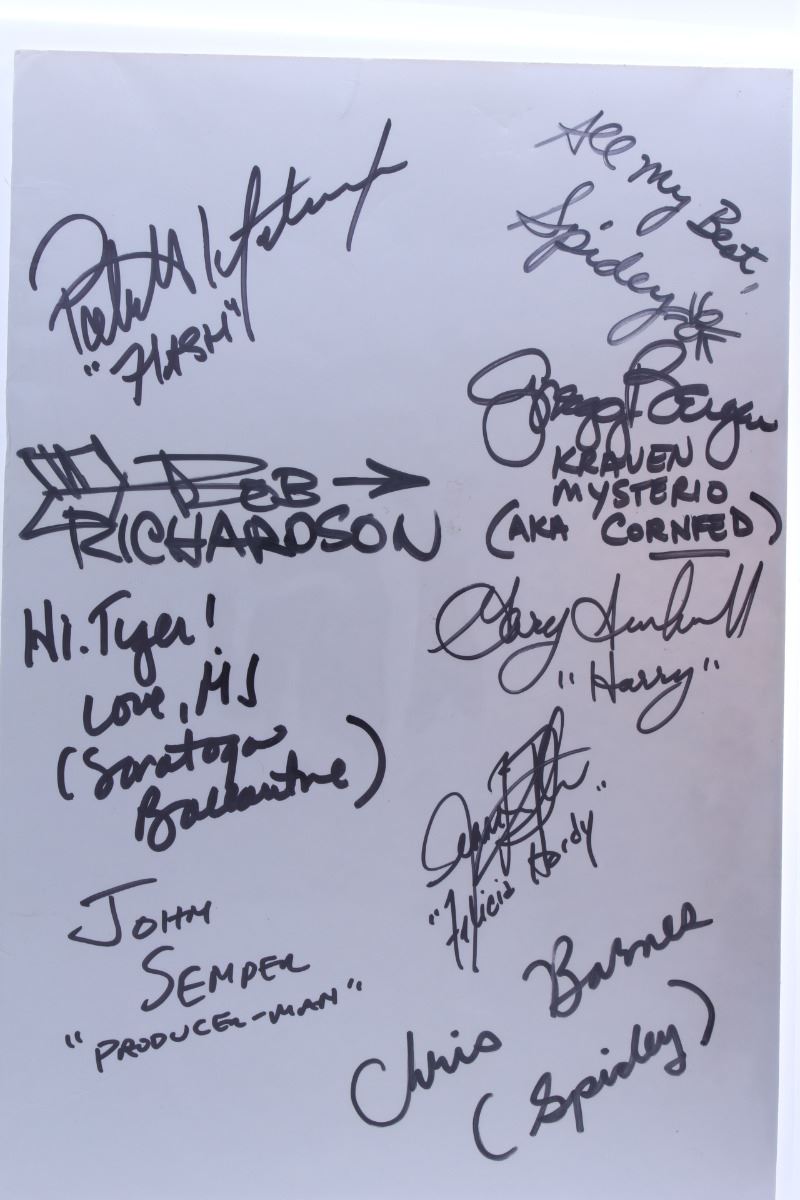 All my Best,
Spidey
Patrick Labyorteaux
"FLASH"
Gregg Berger
KRAVEN
MYSTERIO
(AKA CORNFED)
BOB
RICHARDSON
Hi. Tiger!
Love, MJ
(Saratoga
Ballantine)
Gary Imhoff
"Harry"
"Felicia Hardy"
JOHN
SEMPER
"PRODUCER-MAN"
Chris Barnes
(Spidey)